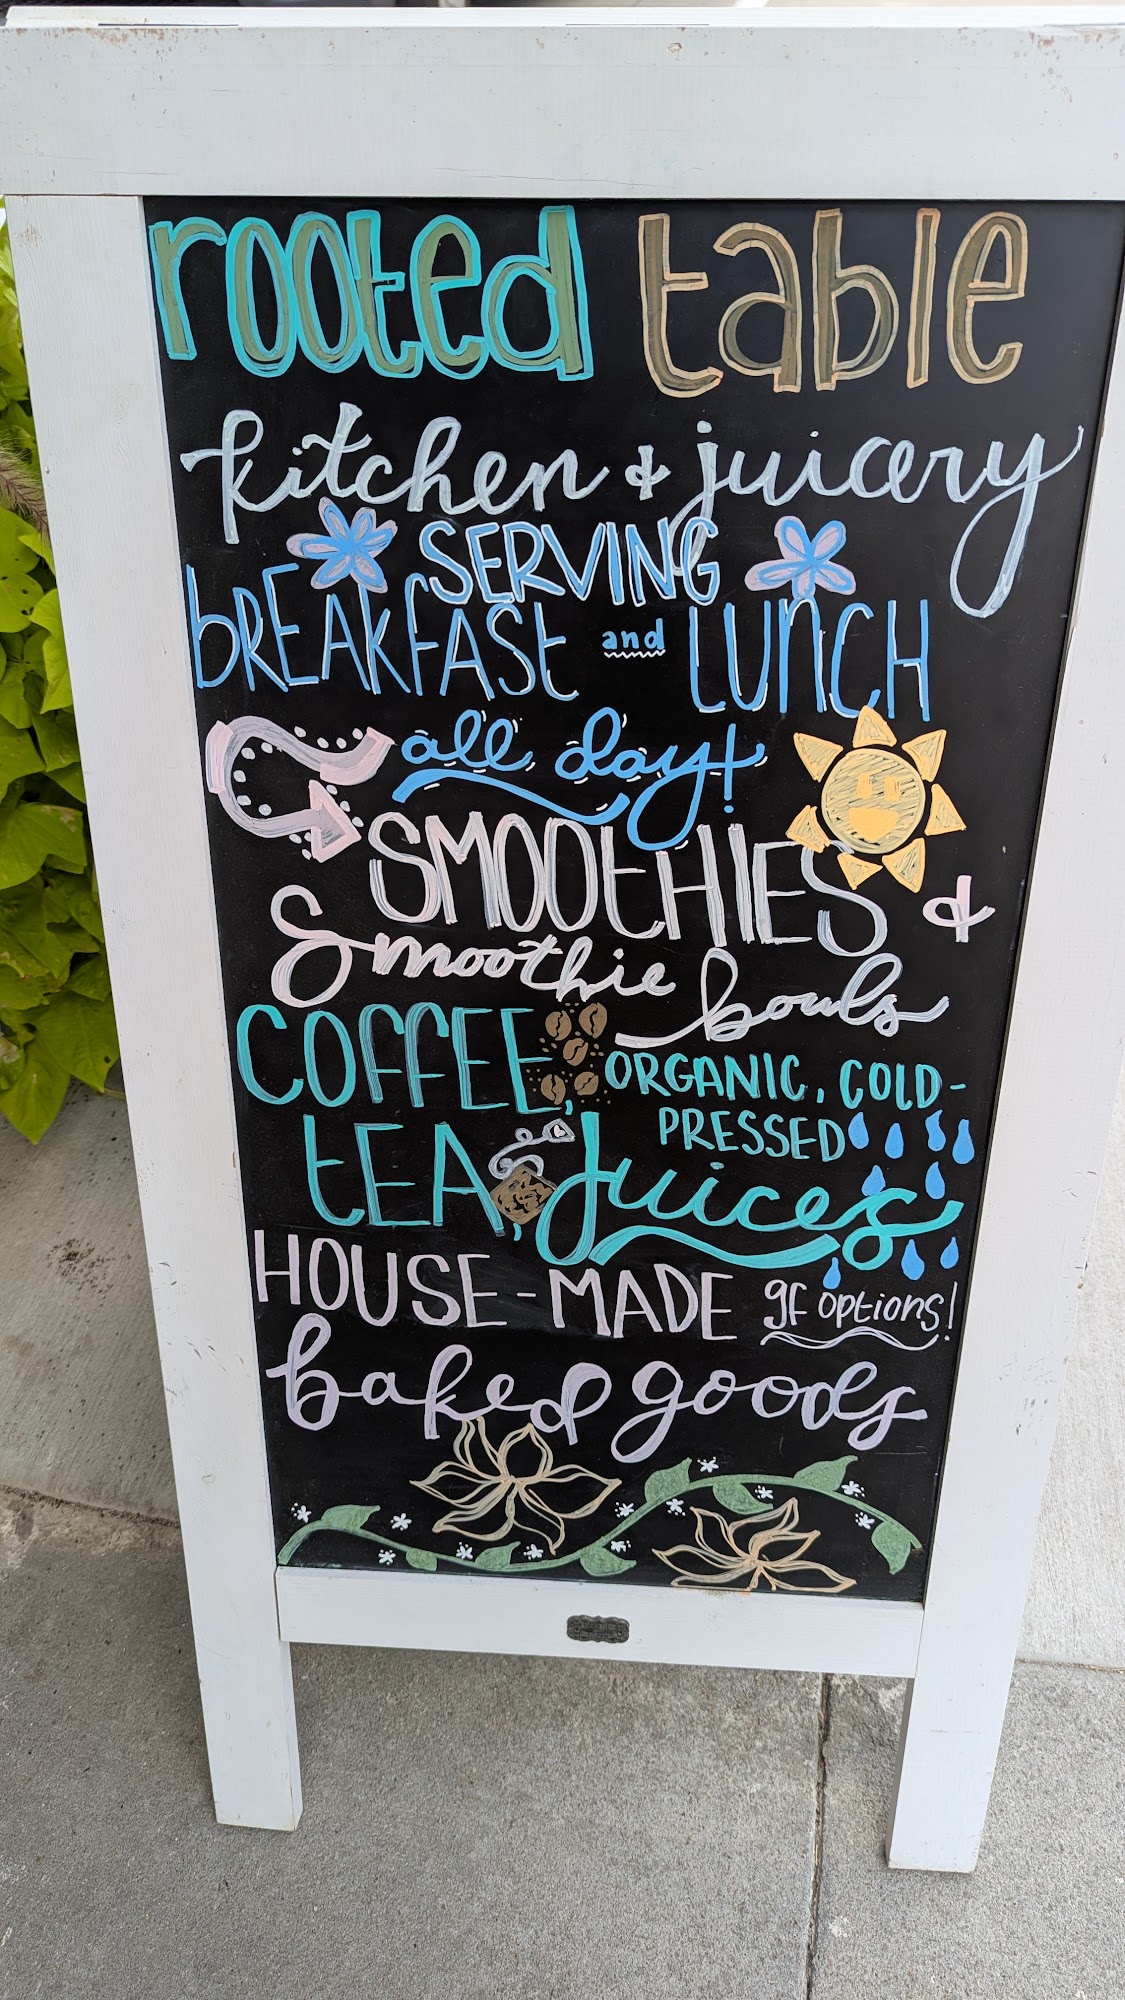 rooted table
kitchen & juicery
SERVING
bREAKfASt and LUnCH
all day!
SMOOtHIES &
Smoothie bowls
COffEE,
ORGANIC, COLD-
PRESSED
tEA, Juices
HOUSE-MADE gf options!
baked goods